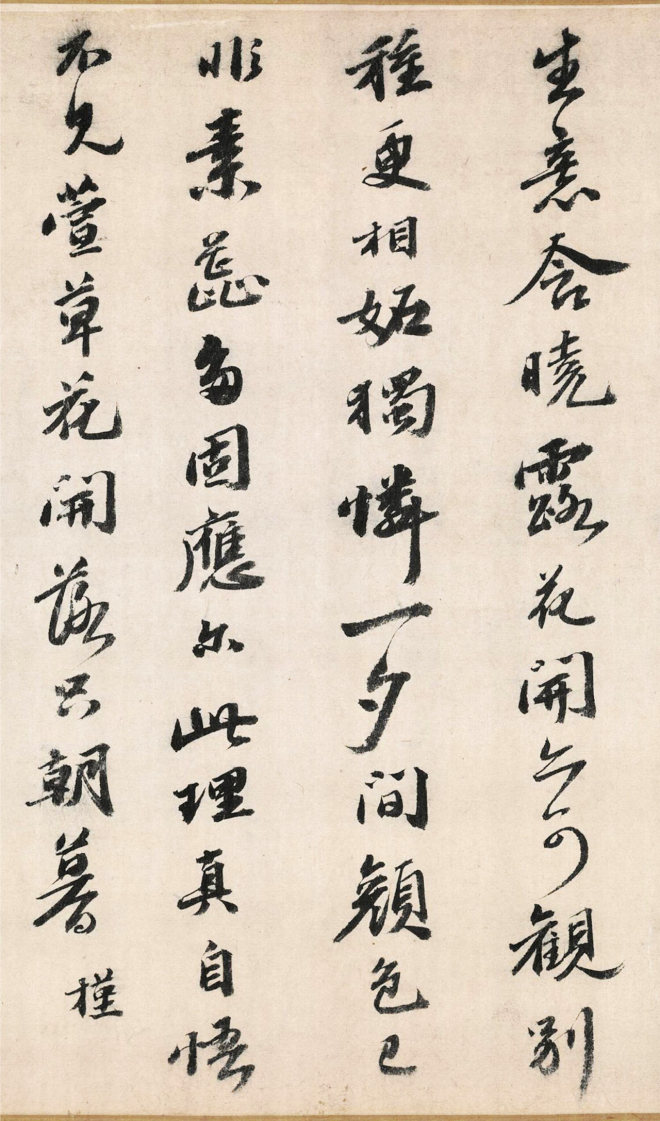 生意含曉露花開亦可觀別
種更相妬獨憐一夕間顏色已
非素蕊多固應尔此理真自悟
不見萱草花開落只朝暮 槿